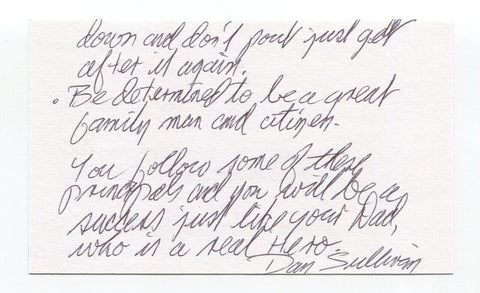 down and don't pout just get
after it again.
• Be determined to be a great
family man and citizen.
You follow some of these
principals and you will be a
success just like your Dad,
who is a real Hero.
Dan Sullivan